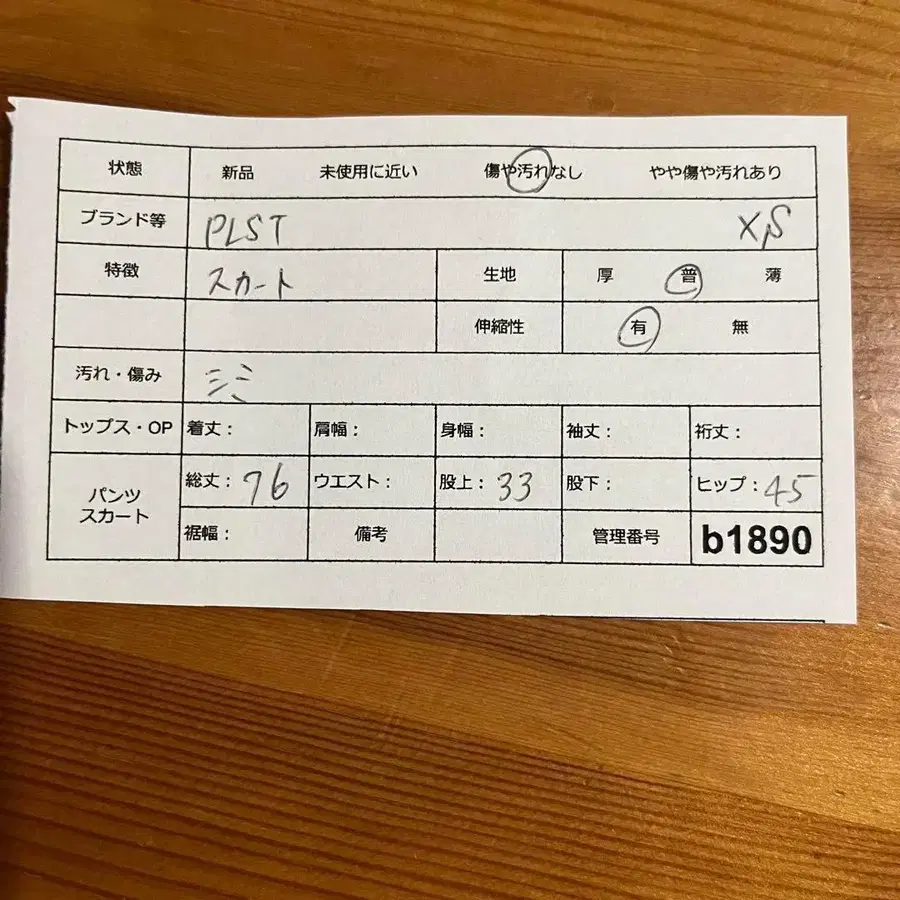 状態 新品 未使用に近い 傷や汚れなし やや傷や汚れあり
ブランド等 PLST XS
特徴 スカート 生地 厚 普 薄
伸縮性 有 無
汚れ・傷み
トップス・OP 着丈： 肩幅： 身幅： 袖丈： 裄丈：
パンツ スカート 総丈：76 ウエスト： 股上：33 股下： ヒップ：45
裾幅： 備考 管理番号 b1890